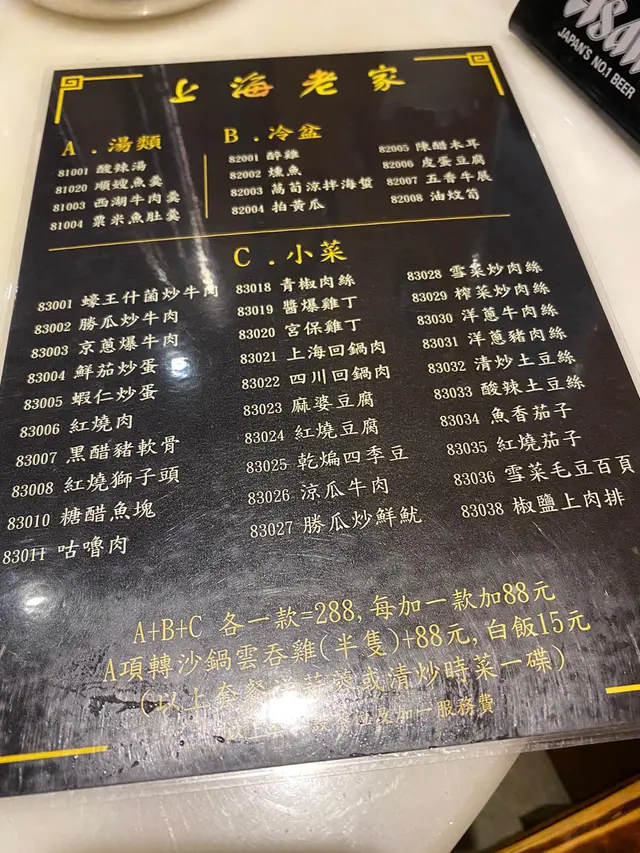 Asahi
JAPAN'S NO.1 BEER
上海老家
A.湯類
81001 酸辣湯
81020 順嫂魚羹
81003 西湖牛肉羹
81004 粟米魚肚羹
B.冷盆
82001 醉雞
82002 燻魚
82003 萵荀涼拌海蜇
82004 拍黃瓜
82005 陳醋木耳
82006 皮蛋豆腐
82007 五香牛展
82008 油炆筍
C.小菜
83001 蠔王什菌炒牛肉
83002 勝瓜炒牛肉
83003 京蔥爆牛肉
83004 鮮茄炒蛋
83005 蝦仁炒蛋
83006 紅燒肉
83007 黑醋豬軟骨
83008 紅燒獅子頭
83010 糖醋魚塊
83011 咕嚕肉
83018 青椒肉絲
83019 醬爆雞丁
83020 宮保雞丁
83021 上海回鍋肉
83022 四川回鍋肉
83023 麻婆豆腐
83024 紅燒豆腐
83025 乾煸四季豆
83026 涼瓜牛肉
83027 勝瓜炒鮮魷
83028 雪菜炒肉絲
83029 榨菜炒肉絲
83030 洋蔥牛肉絲
83031 洋蔥豬肉絲
83032 清炒土豆絲
83033 酸辣土豆絲
83034 魚香茄子
83035 紅燒茄子
83036 雪菜毛豆百頁
83038 椒鹽上肉排
A+B+C 各一款=288,每加一款加88元
A項轉沙鍋雲吞雞(半隻)+88元,白飯15元
(以上套餐或清炒時菜一碟)
加一服務費